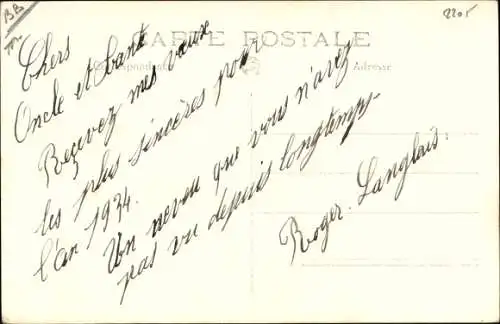 BB
m
2205
CARTE POSTALE
Correspondance
Adresse
Chers
Oncle et tante
Recevez mes vœux
les plus sincères pour
l'an 1934.
Un neveu que vous n'avez
pas vu depuis longtemps.
Roger Langlais.